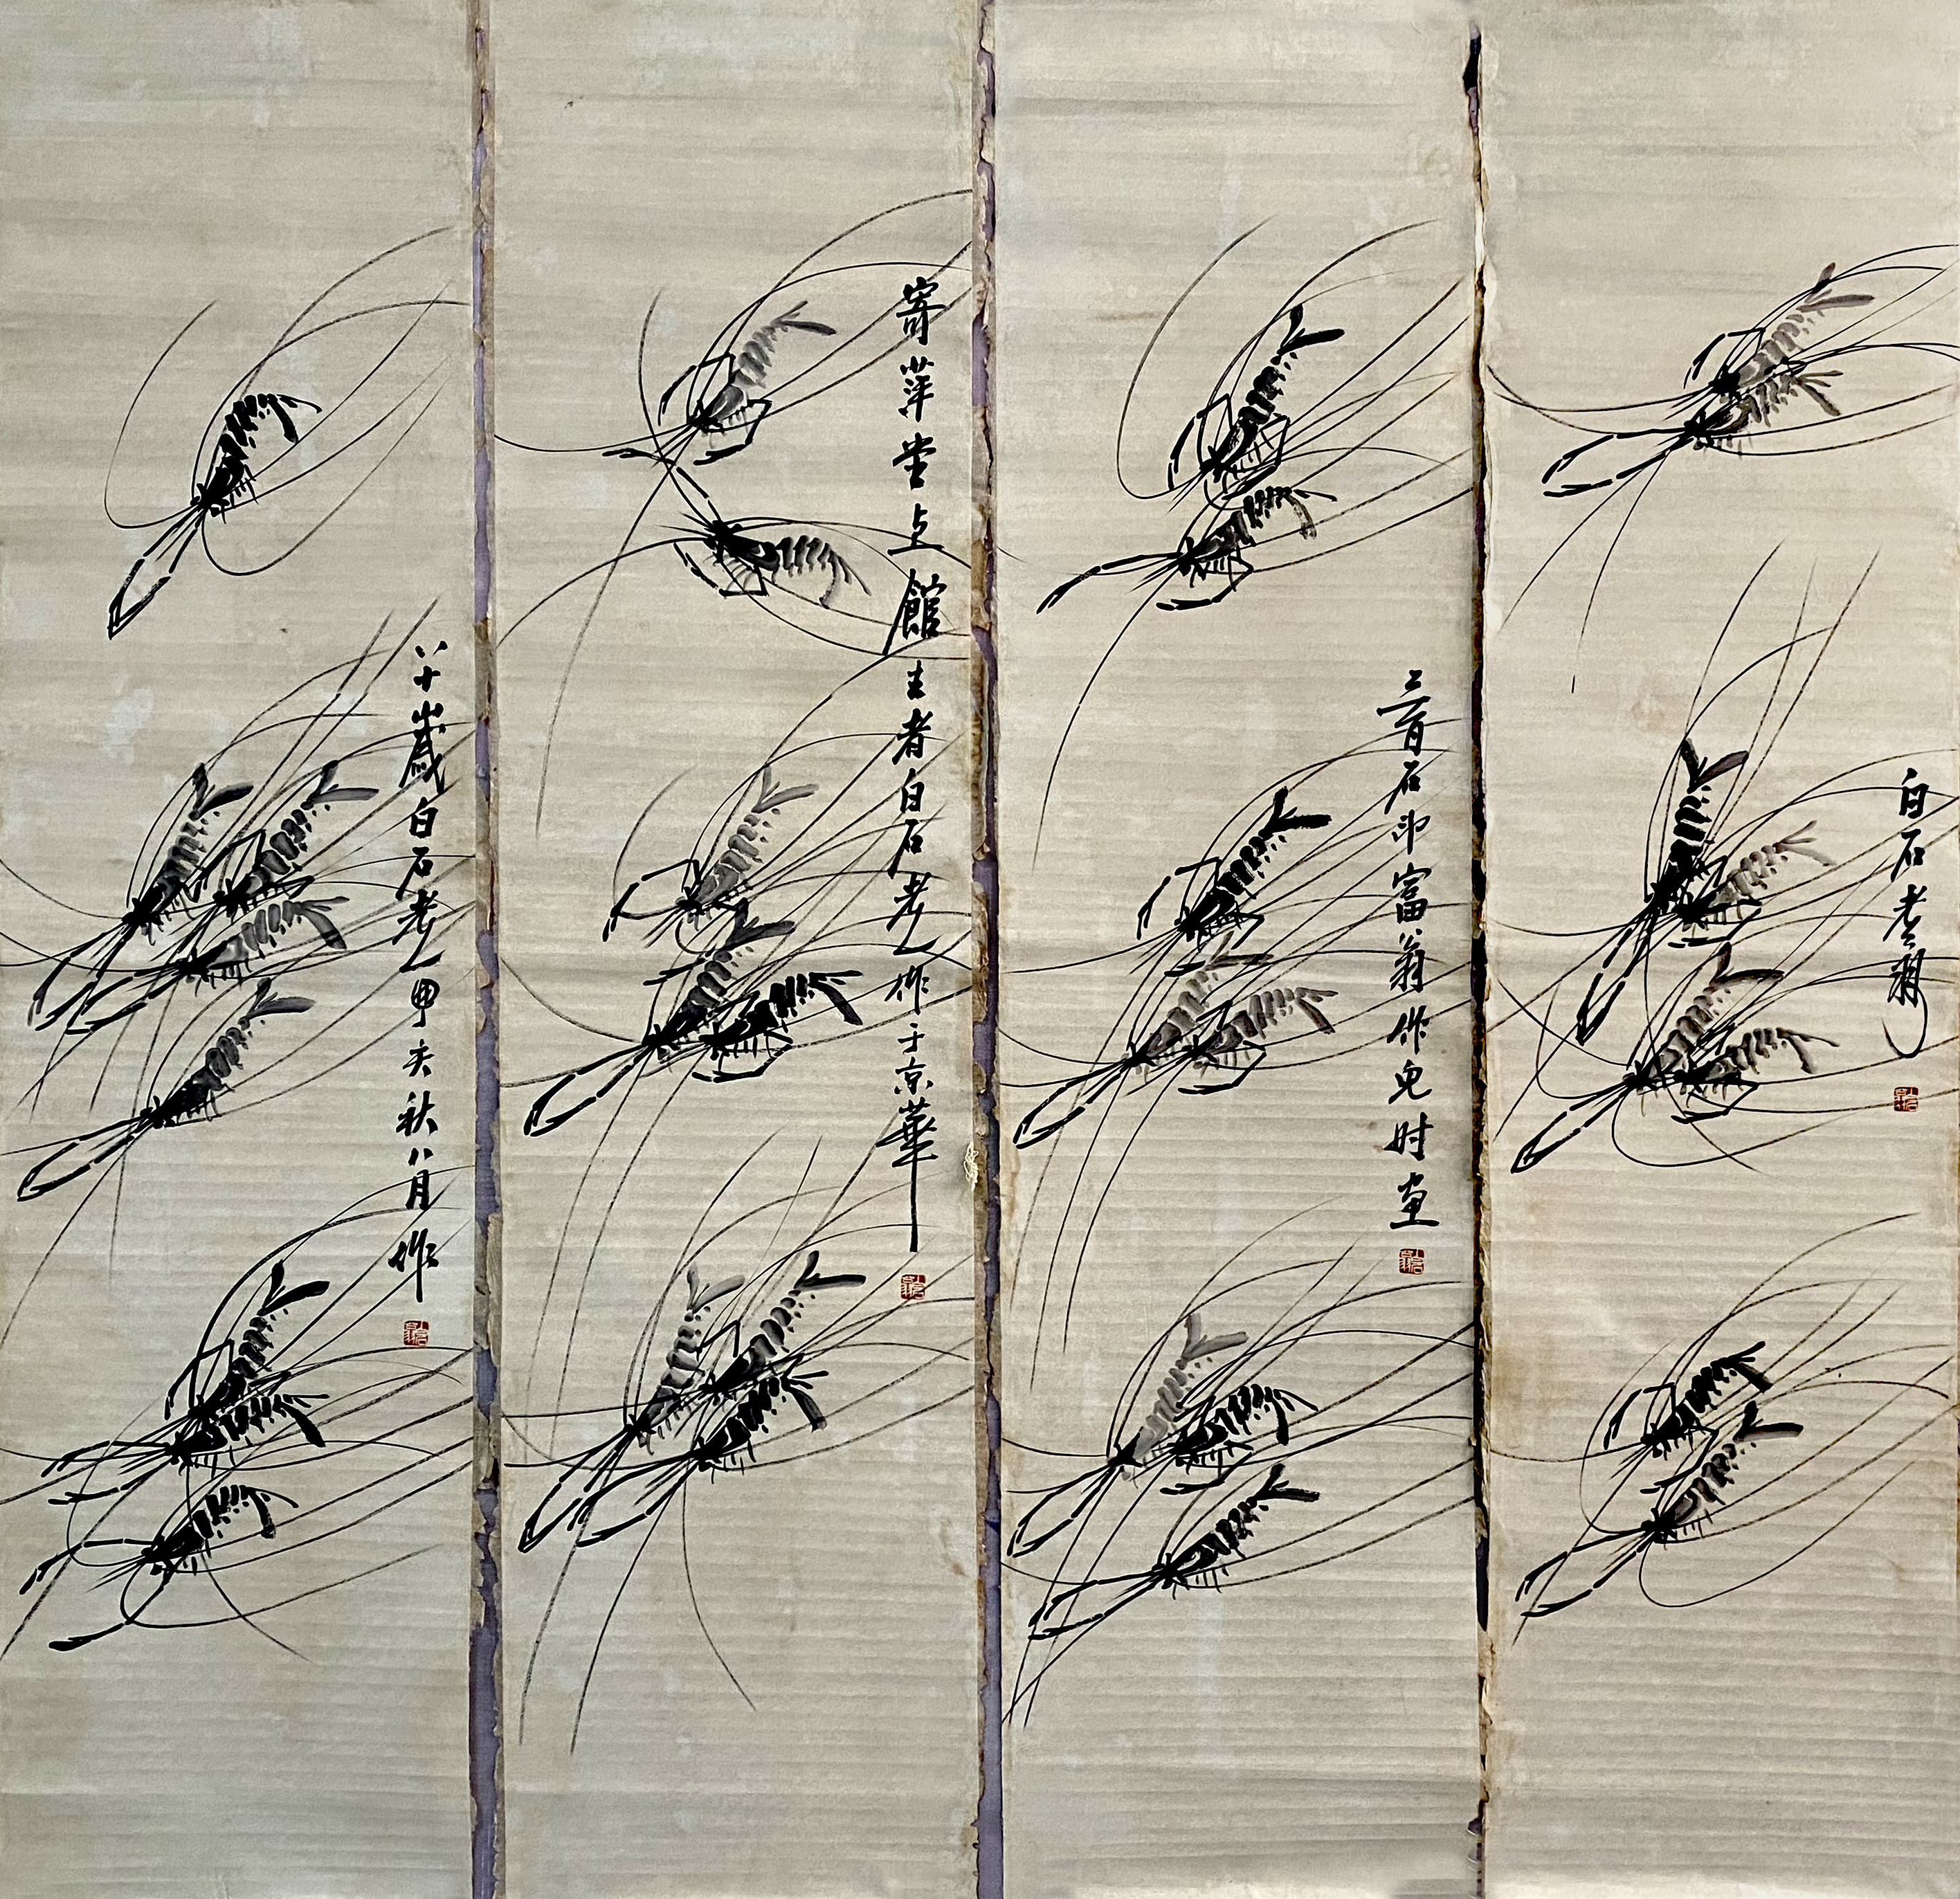 白石老翁
三百石印富翁作时画
寄萍堂上館主者白石老人作于京華
八十歲白石老人甲秋八月作